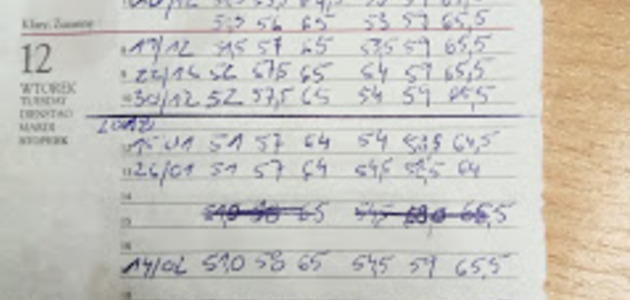 51,5 56 65 53 59 65,5
Klary, Zuzanny
12
19/12 51,5 57 65 53,5 59 65,5
22/12 52 57,5 65 54 59 65,5
WTOREK
TUESDAY
30/12 52 57,5 65 54 59 65,5
DIENSTAG
MARDI
ВТОРНИК
15/01 51 57 64 54 64,5
13 26/01 51 57 64 54,5 58,5 64
14
65 65,5
15
16
14/02 51,0 58 65 54,5 59 65,5